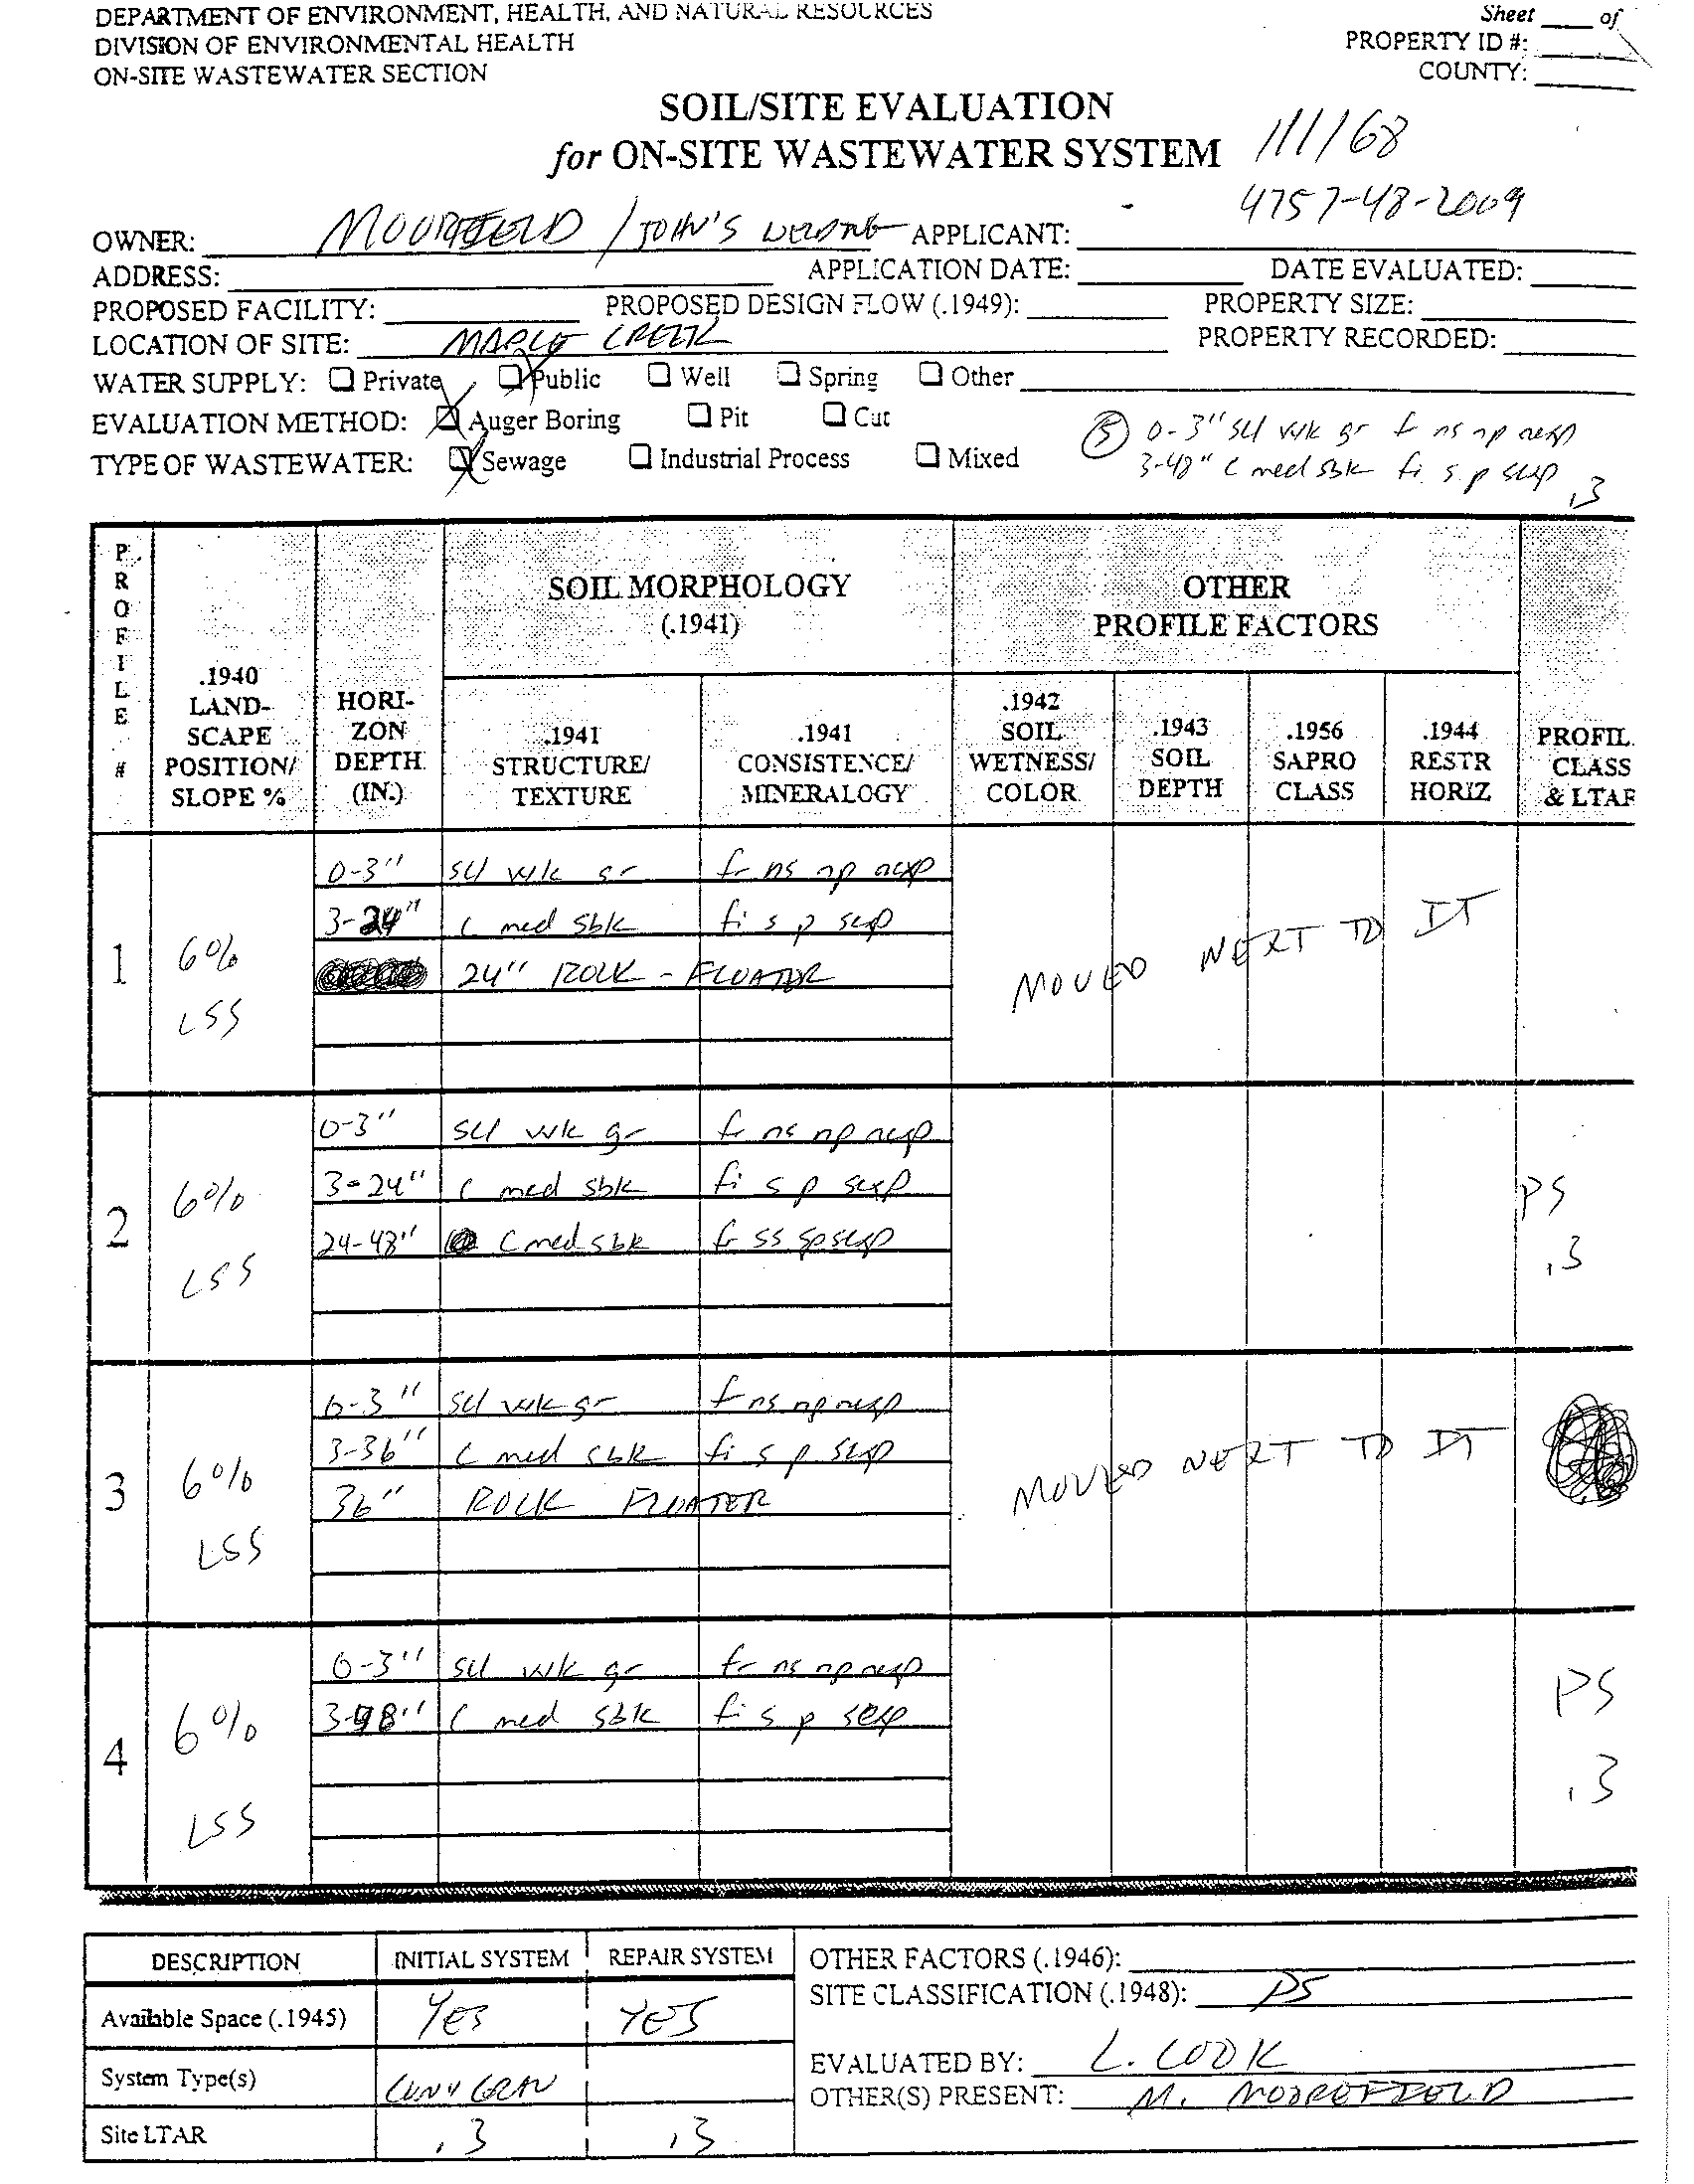 DEPARTMENT OF ENVIRONMENT, HEALTH, AND NATURAL RESOURCES
DIVISION OF ENVIRONMENTAL HEALTH
ON-SITE WASTEWATER SECTION
Sheet ____ of
PROPERTY ID #:
COUNTY:
SOIL/SITE EVALUATION
for ON-SITE WASTEWATER SYSTEM
111168
4757-48-2009
OWNER: MOOREFIELD / JOHN'S WELDING APPLICANT:
ADDRESS: APPLICATION DATE: DATE EVALUATED:
PROPOSED FACILITY: PROPOSED DESIGN FLOW (.1949): PROPERTY SIZE:
LOCATION OF SITE: MAPLE CREEK PROPERTY RECORDED:
WATER SUPPLY: Private Public Well Spring Other
EVALUATION METHOD: Auger Boring Pit Cut
TYPE OF WASTEWATER: Sewage Industrial Process Mixed
5 0-3" scl wk gr fr ns np nexp
3-48" c med sbk fi s p sexp
.3
PROFILE #
.1940 LAND-SCAPE POSITION/ SLOPE %
HORI-ZON DEPTH (IN.)
SOIL MORPHOLOGY (.1941)
OTHER PROFILE FACTORS
.1941 STRUCTURE/ TEXTURE
.1941 CONSISTENCE/ MINERALOGY
.1942 SOIL WETNESS/ COLOR
.1943 SOIL DEPTH
.1956 SAPRO CLASS
.1944 RESTR HORIZ
PROFIL CLASS & LTAR
1 6% LSS
0-3" scl wk gr fr ns np nexp
3-24" c med sbk fi s p sexp
24" ROCK - FLOATER
MOVED NEXT TO IT
2 6% LSS
0-3" scl wk gr fr ns np nexp
3-24" c med sbk fi s p sexp
24-48" c med sbk fr ss sp sexp
PS
.3
3 6% LSS
0-3" scl wk gr fr ns np nexp
3-36" c med sbk fi s p sexp
36" ROCK FLOATER
MOVED NEXT TO IT
4 6% LSS
0-3" scl wk gr fr ns np nexp
3-48" c med sbk fi s p sexp
PS
.3
DESCRIPTION INITIAL SYSTEM REPAIR SYSTEM
Available Space (.1945) YES YES
System Type(s) CONV GRAV
Site LTAR .3 .3
OTHER FACTORS (.1946):
SITE CLASSIFICATION (.1948): PS
EVALUATED BY: L. COOK
OTHER(S) PRESENT: M. MOOREFIELD